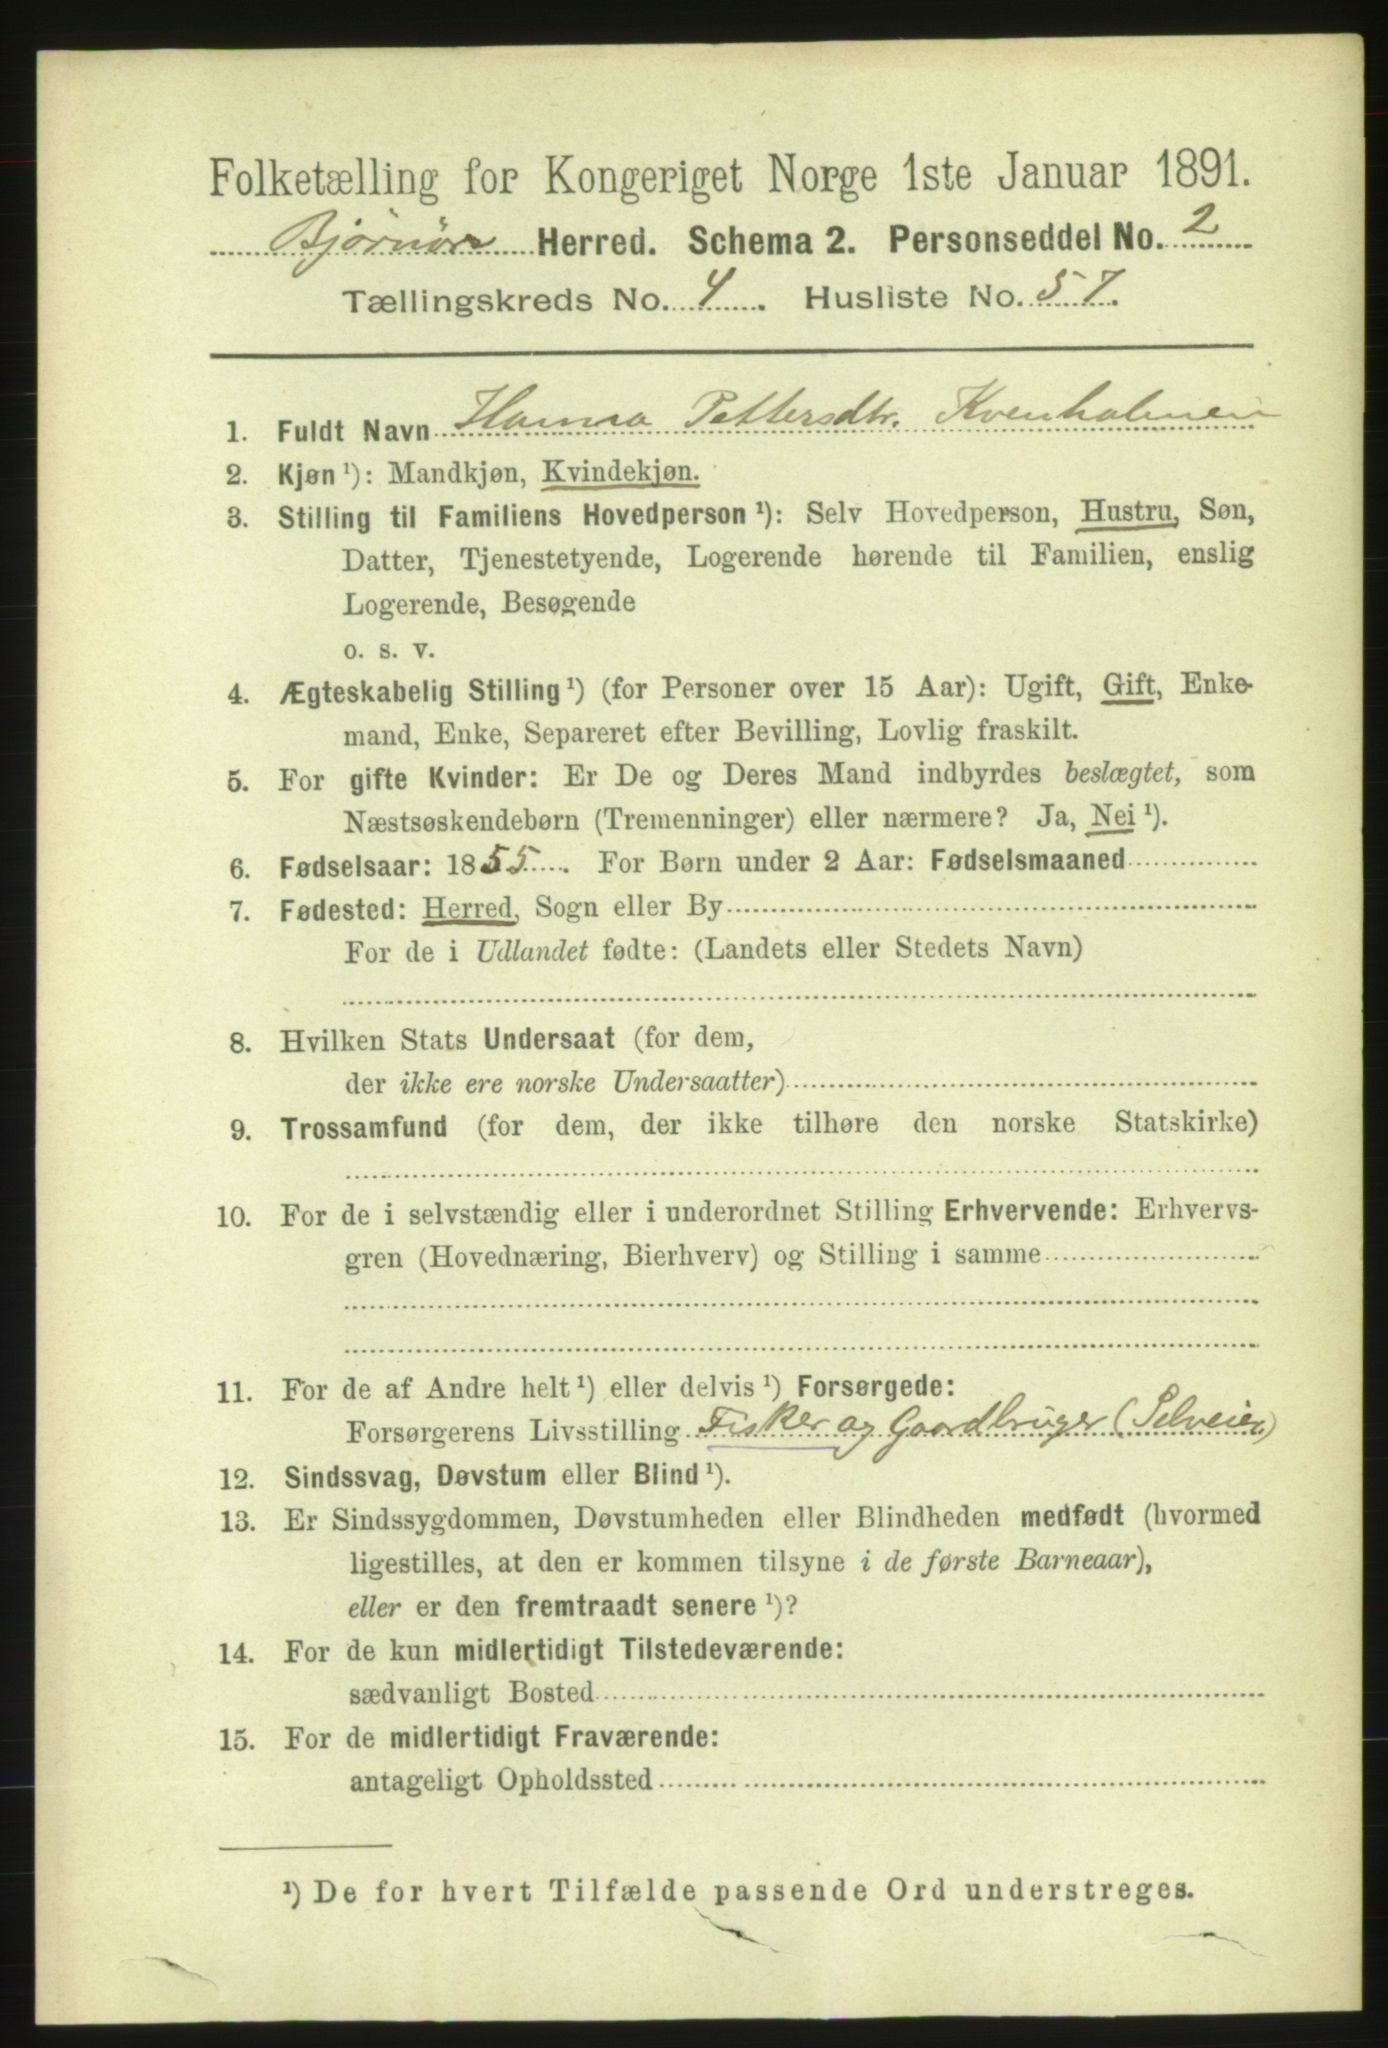 Folketælling for Kongeriget Norge 1ste Januar 1891.
Bjørnør Herred. Schema 2. Personseddel No. 2
Tællingskreds No. 4. Husliste No. 57.
1. Fuldt Navn Hanna Pettersdtr. Kvenholmen
2. Kjøn ¹): Mandkjøn, Kvindekjøn.
3. Stilling til Familiens Hovedperson ¹): Selv Hovedperson, Hustru, Søn,
Datter, Tjenestetyende, Logerende hørende til Familien, enslig
Logerende, Besøgende
o. s. v.
4. Ægteskabelig Stilling ¹) (for Personer over 15 Aar): Ugift, Gift, Enke-
mand, Enke, Separeret efter Bevilling, Lovlig fraskilt.
5. For gifte Kvinder: Er De og Deres Mand indbyrdes beslægtet, som
Næstsøskendebørn (Tremenninger) eller nærmere? Ja, Nei ¹).
6. Fødselsaar: 1855. For Børn under 2 Aar: Fødselsmaaned
7. Fødested: Herred, Sogn eller By
For de i Udlandet fødte: (Landets eller Stedets Navn)
8. Hvilken Stats Undersaat (for dem,
der ikke ere norske Undersaatter)
9. Trossamfund (for dem, der ikke tilhøre den norske Statskirke)
10. For de i selvstændig eller i underordnet Stilling Erhvervende: Erhvervs-
gren (Hovednæring, Bierhverv) og Stilling i samme
11. For de af Andre helt ¹) eller delvis ¹) Forsørgede:
Forsørgerens Livsstilling Fisker og Gaardbruger (Selveier)
12. Sindssvag, Døvstum eller Blind ¹).
13. Er Sindssygdommen, Døvstumheden eller Blindheden medfødt (hvormed
ligestilles, at den er kommen tilsyne i de første Barneaar),
eller er den fremtraadt senere ¹)?
14. For de kun midlertidigt Tilstedeværende:
sædvanligt Bosted
15. For de midlertidigt Fraværende:
antageligt Opholdssted
¹) De for hvert Tilfælde passende Ord understreges.